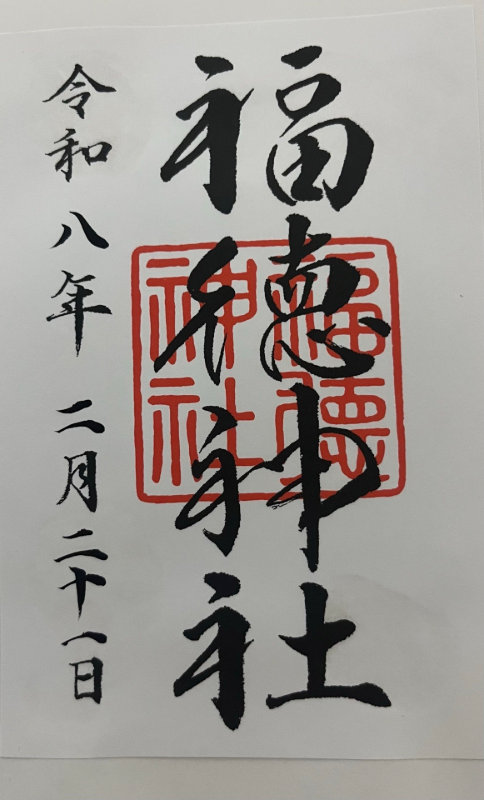 福德神社
福徳神社
令和八年二月二十一日